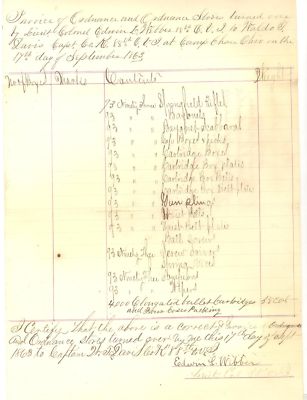 Invoice of Ordnance and Ordnance Stores turned over
by Lieut Colonel Edwin L. Webber 88th O.V.I. to Waldo F.
Davis Capt Co K. 88th O.V.I. at Camp Chase Ohio on the
17th day of September 1863
No of Boxes Marks Contents Weight
93 Ninety three Springfield Rifles
93 " " Bayonets
93 " " Bayonet Scabbard
93 " " Cap
93 " " Cartridge Boxes
93 " " Cartridge Box plates
93 " " Cartridge Box Belts
93 " " Cartridge Box Belt plates
93 " " Gun slings
93 " " Waist Belts
93 " " Waist Belt plates
Ball Screws
93 Ninety three Screw Drivers
Spring Vices
93 Ninety three Tompions
93 " " Wipers
4000 Elongated ballet Cartridges
and three boxes Packing
I Certify that the above is a correct Invoice of Ordnance
and Ordnance Stores turned over by me this 17th day of Sept
1863 to Captain W. F. Davis Co K 88th O.V.I.
Edwin L. Webber
Lieut Col 88th O.V.I.